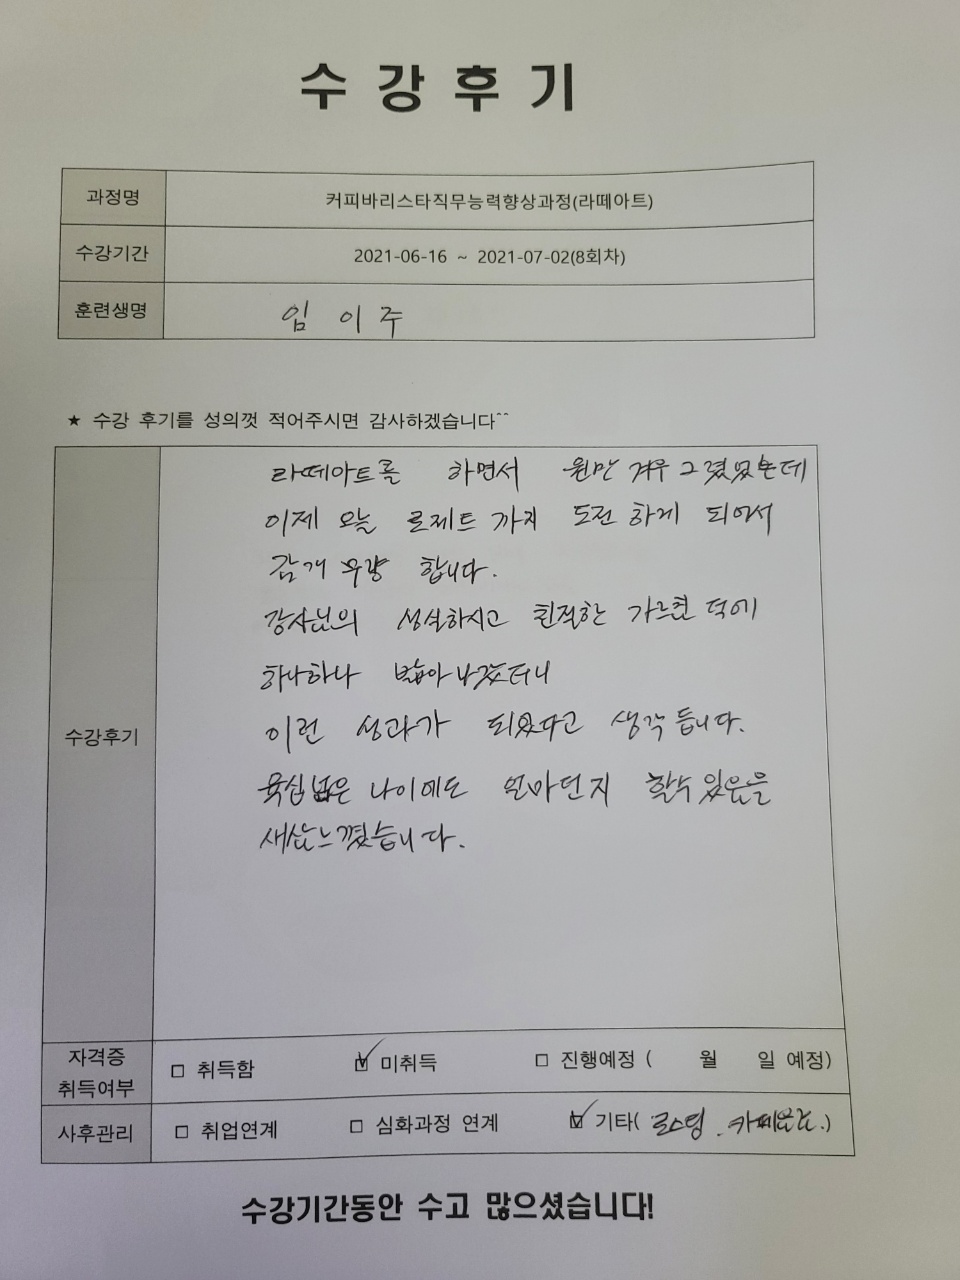 수 강 후 기
과정명 커피바리스타직무능력향상과정(라떼아트)
수강기간 2021-06-16 ~ 2021-07-02(8회차)
훈련생명 임 이 주
★ 수강 후기를 성의껏 적어주시면 감사하겠습니다^^
수강후기
라떼아트를 하면서 원만 겨우 그렸었는데
이제 오늘 로제트 까지 도전 하게 되어서
감개 무량 합니다.
강사님의 성실하시고 친절한 가르침 덕에
하나하나 밟아 나갔더니
이런 성과가 되었다고 생각 듭니다.
육십 넘은 나이에도 얼마던지 할수 있음을
새삼 느꼈습니다.
자격증 취득여부 □ 취득함 ☑ 미취득 □ 진행예정 ( 월 일 예정)
사후관리 □ 취업연계 □ 심화과정 연계 ☑ 기타( 로스팅 . )
수강기간동안 수고 많으셨습니다!